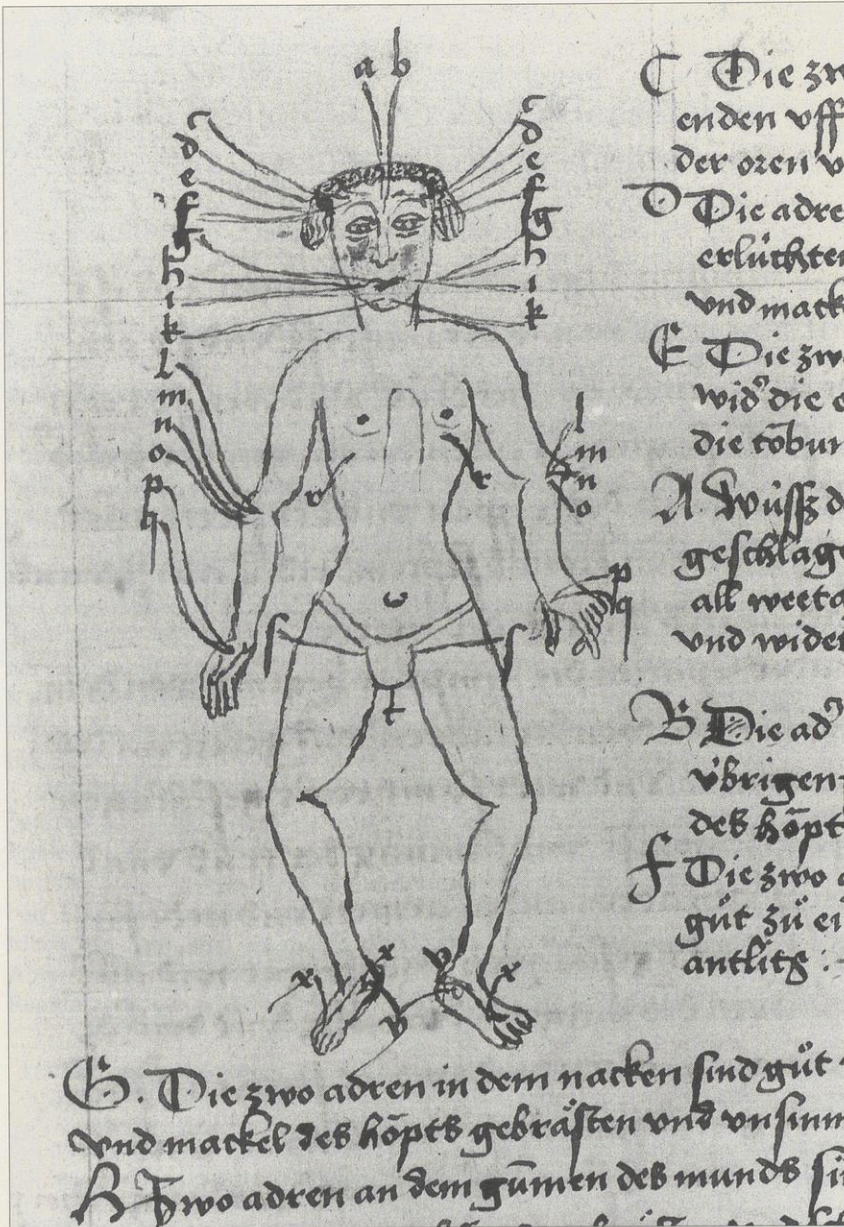 a b
c c
d d
e e
f f
g g
h h
i i
k k
l l
m m
n n
o o
p p
q q
r r
ſ ſ
t
x x v x
v
C Die zw
enden vff
der oren v
D Die adre
erlúchten
vnd mack
E Die zwo
wid' die e
die tobun
A. Wússz d
geschlage
all weeta
vnd wider
B Die ad'
úbrigen
des hőpt
F Die zwo a
gůt zů ei
antlits :-
G. Die zwo adren in dem nacken sind gůt
vnd mackel des hőpts gebrästen vnd vnsinn
H Zwo adren an dem gúmen des munds si